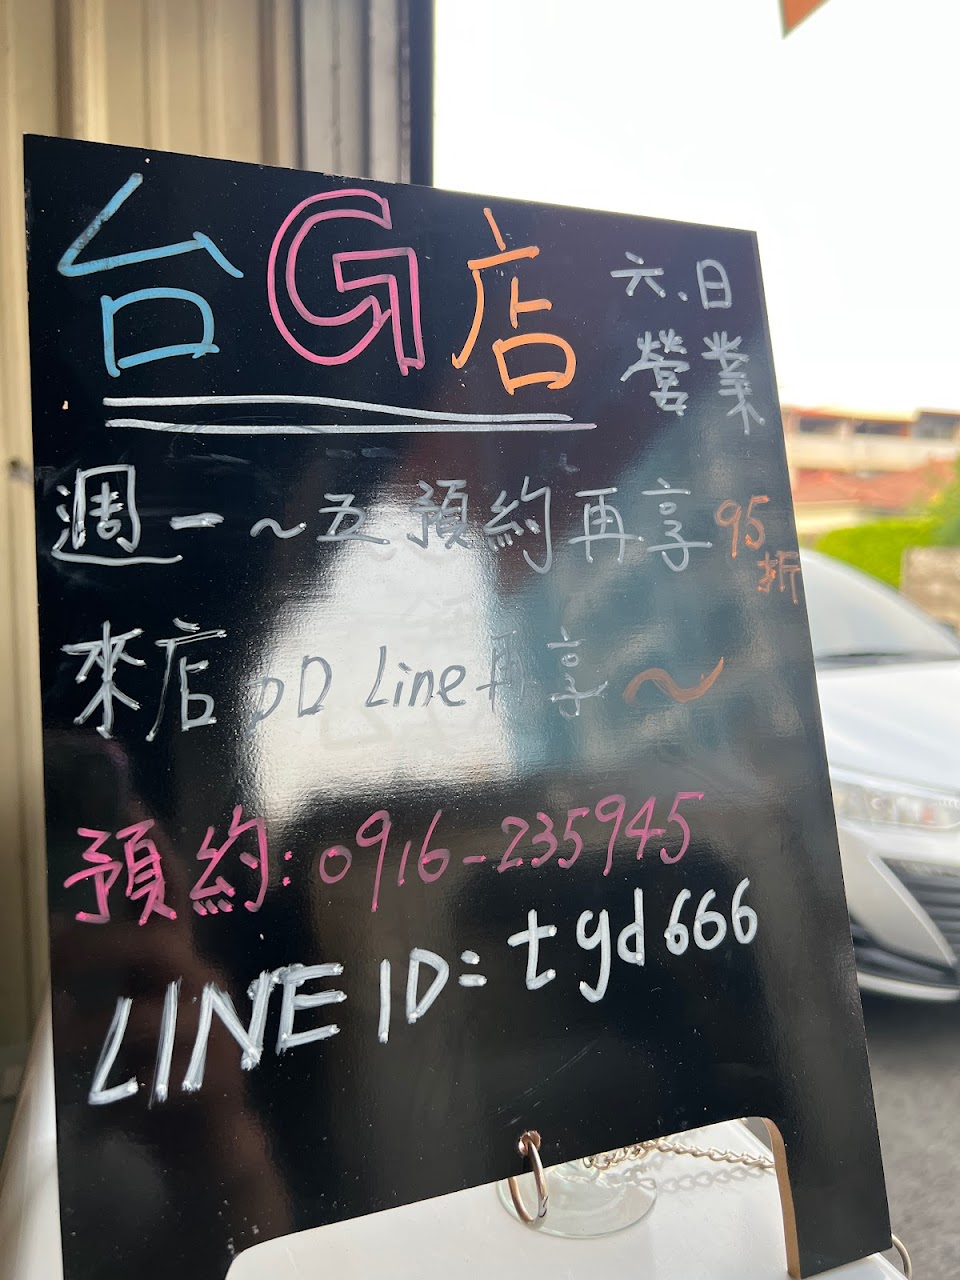 台G店
六.日
營業
週一~五預約再享95折
來店 Line再享~
預約:0916-235945
LINE ID:tgd666